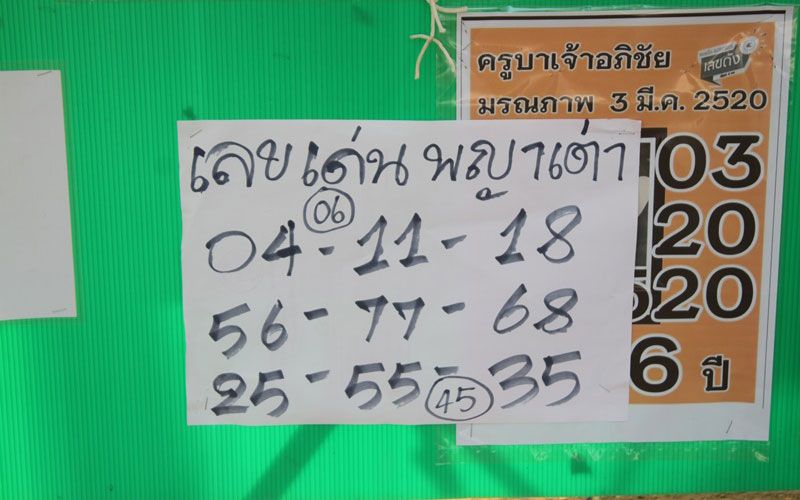 เลขเด่น พญาเต่า
06
04 - 11 - 18
56 - 77 - 68
25 - 55 - 35
45
ครูบาเจ้าอภิชัย
เลขดัง
มรณภาพ 3 มี.ค. 2520
03
20
520
6 ปี